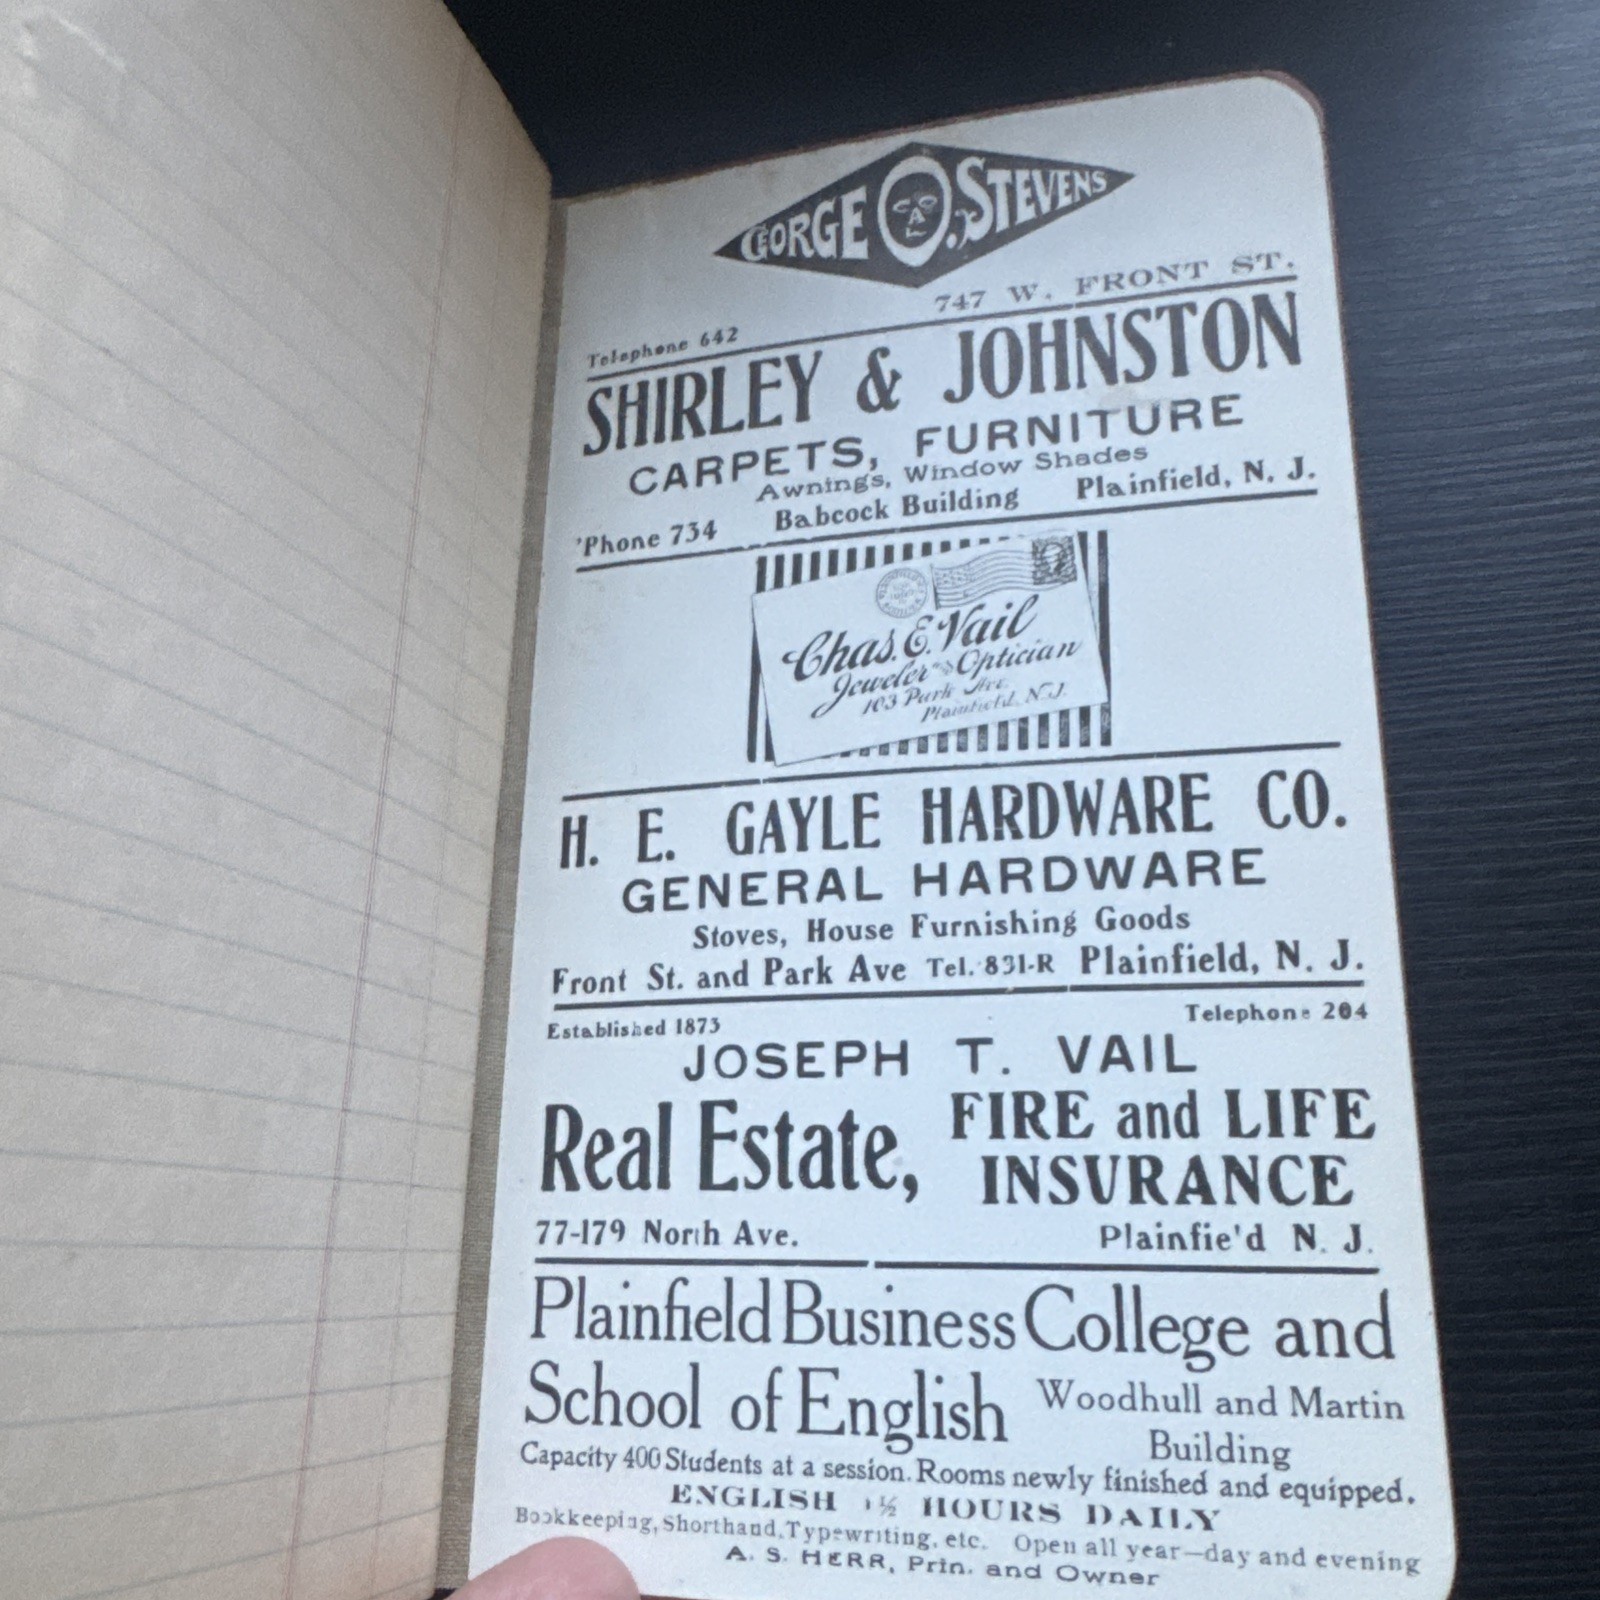 GEORGE O. STEVENS
A
747 W. FRONT ST.
Telephone 642
SHIRLEY & JOHNSTON
CARPETS, FURNITURE
Awnings, Window Shades
'Phone 734 Babcock Building Plainfield, N. J.
Chas. E. Vail
Jeweler Optician
103 Park Ave.
Plainfield, N.J.
H. E. GAYLE HARDWARE CO.
GENERAL HARDWARE
Stoves, House Furnishing Goods
Front St. and Park Ave Tel. 831-R Plainfield, N. J.
Established 1873 Telephone 204
JOSEPH T. VAIL
Real Estate, FIRE and LIFE
INSURANCE
77-179 North Ave. Plainfie'd N. J.
Plainfield Business College and
School of English Woodhull and Martin
Building
Capacity 400 Students at a session. Rooms newly finished and equipped.
ENGLISH 1½ HOURS DAILY
Bookkeeping, Shorthand, Typewriting, etc. Open all year—day and evening
A. S. HERR, Prin. and Owner